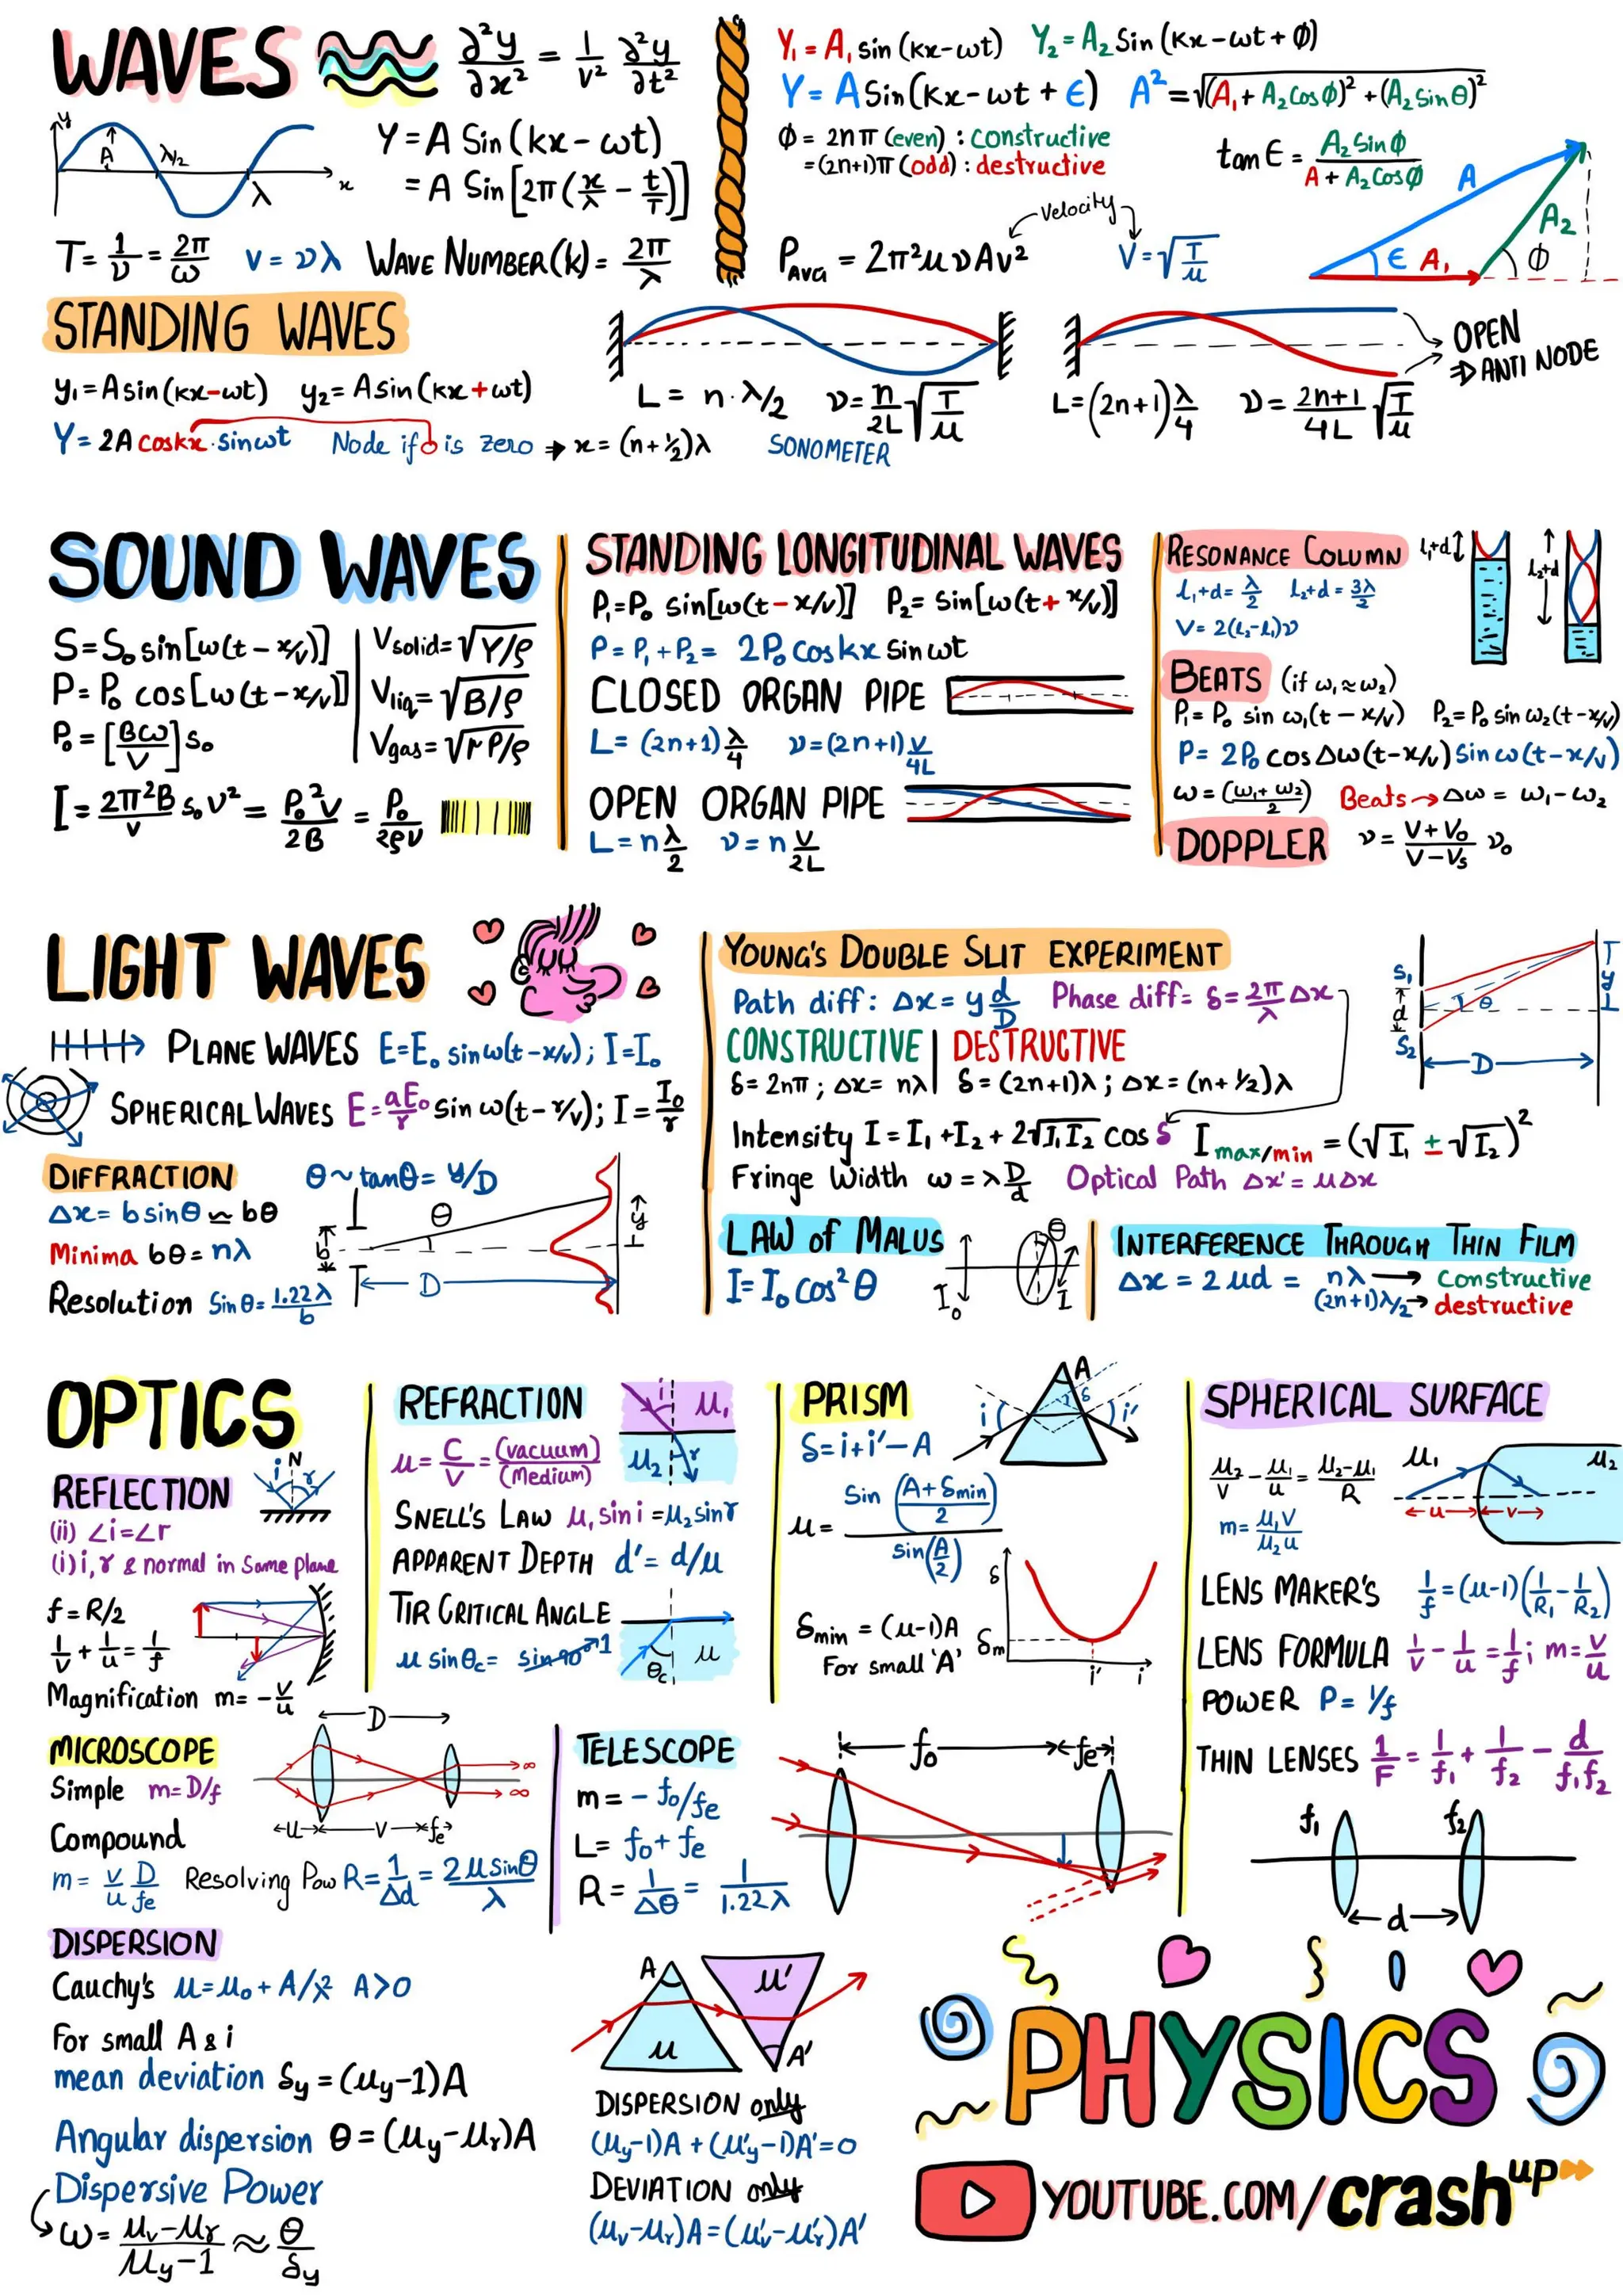 WAVES
∂²y/∂x² = 1/v² ∂²y/∂t²
y
A
λ/2
λ
x
Y = A Sin (kx - ωt)
= A Sin [2π (x/λ - t/T)]
T = 1/ν = 2π/ω    v = νλ    WAVE NUMBER (k) = 2π/λ
Y₁ = A₁ sin (kx-ωt)    Y₂ = A₂ Sin (kx-ωt + ϕ)
Y = A Sin (kx-ωt + ϵ)    A² = √(A₁ + A₂ cosϕ)² + (A₂ sinθ)²
ϕ = 2nπ (even) : constructive
= (2n+1)π (odd) : destructive
tan ϵ = A₂ sinϕ / A + A₂ cosϕ
A
A₂
ϵ A₁
ϕ
Velocity
P_AVG = 2π²μνAv²    V = √T/μ
STANDING WAVES
y₁ = A sin (kx-ωt)    y₂ = A sin (kx+ωt)
Y = 2A coskx · sinωt    Node if is zero → x = (n+½)λ
L = n·λ/2    ν = n/2L √T/μ
SONOMETER
L = (2n+1) λ/4    ν = 2n+1/4L √T/μ
OPEN
⇒ ANTI NODE
SOUND WAVES
S = S₀ sin[ω(t - x/v)]
P = P₀ cos[ω(t-x/v)]
P₀ = [Bω/V] s₀
V solid = √Y/ρ
V liq = √B/ρ
V gas = √rP/ρ
I = 2π²B/v s₀ν² = P₀²v/2B = P₀/2ρv
STANDING LONGITUDINAL WAVES
P₁ = P₀ sin[ω(t-x/v)]    P₂ = sin[ω(t+x/v)]
P = P₁ + P₂ = 2P₀ coskx Sin ωt
CLOSED ORGAN PIPE
L = (2n+1) λ/4    ν = (2n+1) v/4L
OPEN ORGAN PIPE
L = n λ/2    ν = n V/2L
RESONANCE COLUMN
l₁+d
l₂+d
l₁+d = λ/2    l₂+d = 3λ/2
V = 2(l₂-l₁)ν
BEATS (if ω₁≈ω₂)
P₁ = P₀ sin ω₁(t - x/v)    P₂ = P₀ sin ω₂(t-x/v)
P = 2P₀ cos Δω(t-x/v) Sin ω(t-x/v)
ω = (ω₁+ω₂)/2    Beats → Δω = ω₁-ω₂
DOPPLER    ν = V+V₀/V-Vs ν₀
LIGHT WAVES
PLANE WAVES    E = E₀ sinω(t-x/v); I = I₀
SPHERICAL WAVES    E = aE₀/r sin ω(t-r/v); I = I₀/r
DIFFRACTION
Δx = b sinθ ≃ bθ
Minima bθ = nλ
Resolution Sinθ = 1.22λ/b
θ ~ tanθ = y/D
θ
b
y
D
YOUNG'S DOUBLE SLIT EXPERIMENT
Path diff: Δx = y d/D    Phase diff = δ = 2π/λ Δx
CONSTRUCTIVE | DESTRUCTIVE
δ = 2nπ ; Δx = nλ    δ = (2n+1)λ ; Δx = (n+½)λ
Intensity I = I₁ + I₂ + 2√I₁I₂ cos δ    I max/min = (√I₁ ± √I₂)²
Fringe Width ω = λ D/d    Optical Path Δx' = μΔx
S₁
d
S₂
θ
y
D
LAW of MALUS
I = I₀ cos²θ
I₀
θ
I
INTERFERENCE THROUGH THIN FILM
Δx = 2μd = nλ → constructive
(2n+1)λ/2 → destructive
OPTICS
REFLECTION
N
i r
(ii) ∠i = ∠r
(i) i, r & normal in same plane
f = R/2
1/v + 1/u = 1/f
Magnification m = -v/u
REFRACTION
i μ₁
μ₂ r
μ = C/V = (vacuum)/(Medium)
SNELL'S LAW μ₁ sin i = μ₂ sin r
APPARENT DEPTH d' = d/μ
TIR CRITICAL ANGLE
μ sinθc = sin90 1
θc μ
PRISM
δ = i+i'-A
μ = Sin (A+δmin/2) / sin(A/2)
δmin = (μ-1)A
For small 'A'
A
δ
i
i'
δ
δm
i'
i
SPHERICAL SURFACE
μ₂/v - μ₁/u = μ₂-μ₁/R
m = μ₁v/μ₂u
μ₁
μ₂
u
v
LENS MAKER'S 1/f = (μ-1)(1/R₁ - 1/R₂)
LENS FORMULA 1/v - 1/u = 1/f ; m = v/u
POWER P = 1/f
THIN LENSES 1/F = 1/f₁ + 1/f₂ - d/f₁f₂
f₁
f₂
d
MICROSCOPE
Simple m = D/f
Compound
m = v/u D/fe    Resolving Pow R = 1/Δd = 2μsinθ/λ
D
∞
∞
u
v
fe
TELESCOPE
m = - f₀/fe
L = f₀ + fe
R = 1/Δθ = 1/1.22λ
f₀
fe
DISPERSION
Cauchy's μ = μ₀ + A/λ² A>0
For small A & i
mean deviation δy = (μy-1)A
Angular dispersion θ = (μy-μr)A
Dispersive Power
ω = μv-μr/μy-1 ≈ θ/δy
A
μ
μ'
A'
DISPERSION only
(μy-1)A + (μ'y-1)A' = 0
DEVIATION only
(μv-μr)A = (μ'v-μ'r)A'
PHYSICS
YOUTUBE.COM/crashup